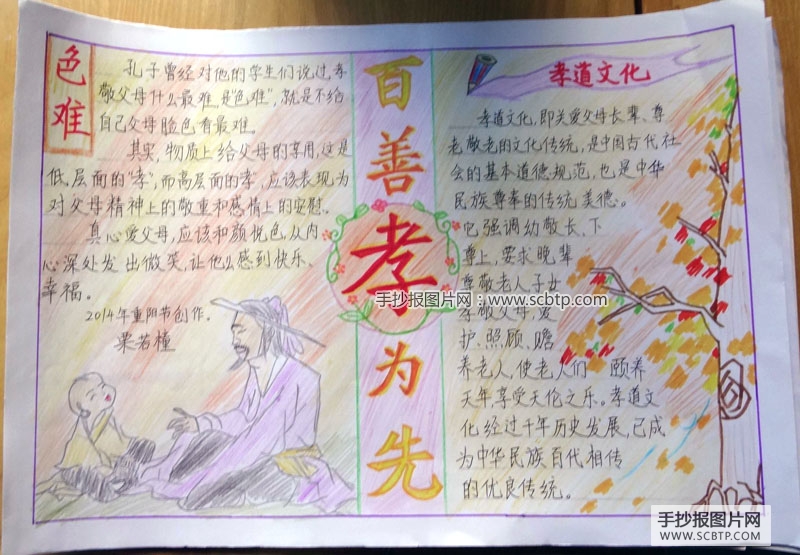 色难
孔子曾经对他的学生们说过,孝
敬父母什么最难,是“色难”,就是不给
自己父母脸色看最难。
其实,物质上给父母的享用,这是
低,层面的“孝”,而高层面的“孝”,应该表现为
对父母精神上的敬重和感情上的安慰。
真心爱父母,应该和颜悦色,从内、
心深处发出微笑,让他么感到快乐、
幸福。
2014年重阳节创作。
栗若槿
百善孝为先
孝道文化
孝道文化,即关爱父母长辈、尊
老敬老的文化传统,是中国古代社
会的基本道德规范,也是中华
民族尊奉的传统美德。
它强调幼敬长、下
尊上,要求晚辈
尊敬老人子女
孝敬父母,爱
护、照顾、赡
养老人,使老人们 颐养
天年,享受天伦之乐。孝道文
化经过千年历史发展,已成
为中华民族百代相传
的优良传统。
手抄报图片网:www.scbtp.com
手抄报图片网
WWW.SCBTP.COM